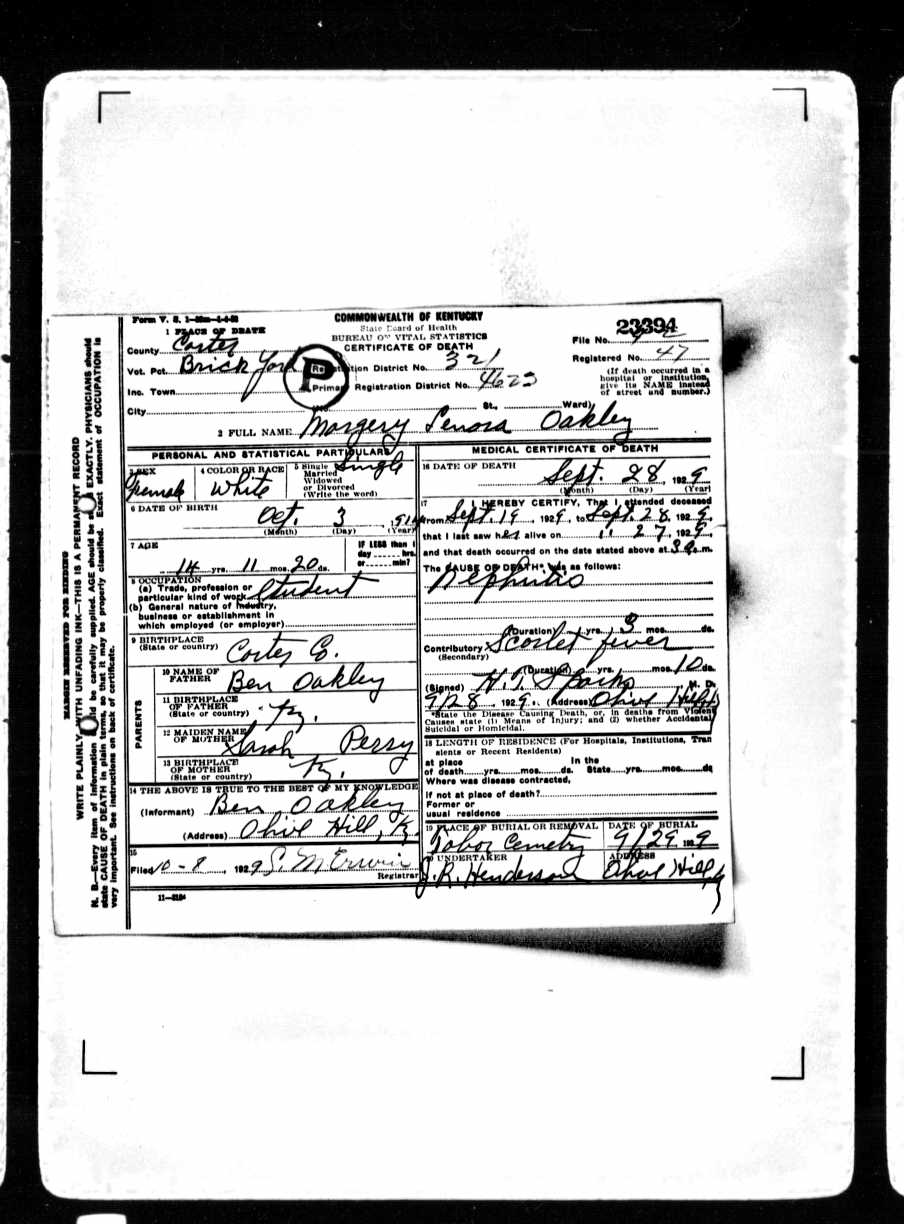 Form V. S.
COMMONWEALTH OF KENTUCKY
State Board of Health
BUREAU OF VITAL STATISTICS
CERTIFICATE OF DEATH
1 PLACE OF DEATH
County Carter
Vot. Pct. Brick York
Inc. Town
City
P
Registration District No. 321
Primary Registration District No. 4623
St., Ward)
23394
File No.
Registered No. 47
(If death occurred in a
hospital or institution,
give its NAME instead
of street and number.)
2 FULL NAME Margery Lenora Oakley
PERSONAL AND STATISTICAL PARTICULARS
3 SEX
Female
4 COLOR OR RACE
White
5 Single
Married
Widowed
or Divorced
(Write the word)
Single
6 DATE OF BIRTH
Oct. 3, 1914
(Month) (Day) (Year)
7 AGE
14 yrs. 11 mos. 20 ds.
IF LESS than 1
day ...... hrs.
or ...... min?
8 OCCUPATION
(a) Trade, profession or
particular kind of work Student
(b) General nature of industry,
business or establishment in
which employed (or employer)
9 BIRTHPLACE
(State or country) Carter Co.
PARENTS
10 NAME OF
FATHER Ben Oakley
11 BIRTHPLACE
OF FATHER
(State or country) Ky.
12 MAIDEN NAME
OF MOTHER Sarah Perry
13 BIRTHPLACE
OF MOTHER
(State or country) Ky.
14 THE ABOVE IS TRUE TO THE BEST OF MY KNOWLEDGE
(Informant) Ben Oakley
(Address) Olive Hill, Ky.
15
Filed 10-8, 1929 S. M Erwin
Registrar
11-3184
MEDICAL CERTIFICATE OF DEATH
16 DATE OF DEATH
Sept. 28, 1929
(Month) (Day) (Year)
17 I HEREBY CERTIFY, That I attended deceased
from Sept. 19, 1929, to Sept. 28, 1929,
that I last saw her alive on " 27, 1929,
and that death occurred on the date stated above at 3 a.m.
The CAUSE OF DEATH* was as follows:
Nephritis
(Duration) yrs. 3 mos. ds.
Contributory Scarlet fever
(Secondary)
(Duration) yrs. mos. 10 ds.
(Signed) H. T. Sparks M. D.
9/28, 1929. (Address) Olive Hill
*State the Disease Causing Death, or, in deaths from Violent
Causes state (1) Means of Injury; and (2) whether Accidental,
Suicidal or Homicidal.
18 LENGTH OF RESIDENCE (For Hospitals, Institutions, Tran
sients or Recent Residents)
at place In the
of death yrs. mos. ds. State yrs. mos. ds
Where was disease contracted,
If not at place of death?
Former or
usual residence
19 PLACE OF BURIAL OR REMOVAL DATE OF BURIAL
Tabor Cemetry 9/29 1929
20 UNDERTAKER ADDRESS
J. R. Henderson Olive Hill, Ky
MARGIN RESERVED FOR BINDING
WRITE PLAINLY, WITH UNFADING INK—THIS IS A PERMANENT RECORD
N. B.—Every item of information should be carefully supplied. AGE should be stated EXACTLY. PHYSICIANS should
state CAUSE OF DEATH in plain terms, so that it may be properly classified. Exact statement of OCCUPATION is
very important. See instructions on back of certificate.